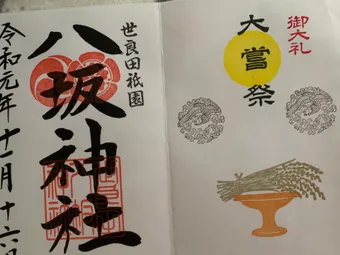 御大礼
大嘗祭
世良田祇園
八坂神社
令和元年十一月十六日